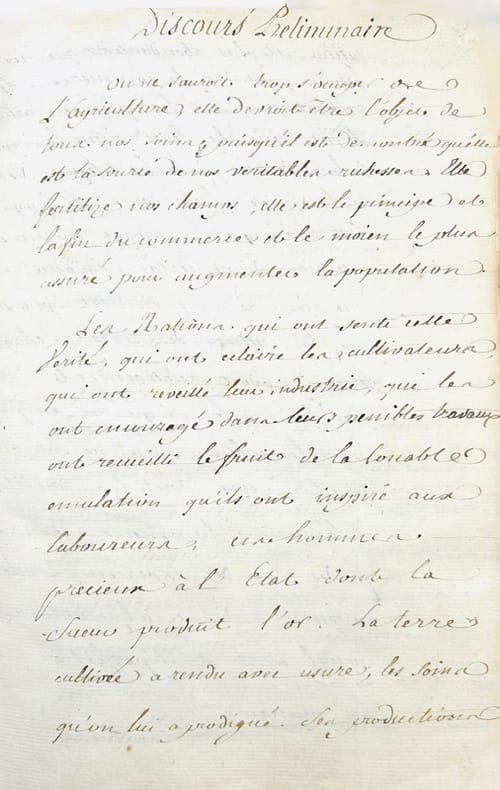 Discours Preliminaire
On ne sauroit trop s'occuper de
L'agriculture; elle devroit être l'objet de
tous nos soins, puisqu'il est demontré qu'elle
est la source de nos veritables richesses. Elle
fertilize nos champs, elle est le principe et
la fin du commerce, et le moien le plus
assuré pour augmenter la population.
Les Nations qui ont senti cette
Verité, qui ont éclairé les cultivateurs,
qui ont reveillé leur industrie, qui les
ont encouragé dans leurs penibles travaux
ont recueilli le fruit de la louable
emulation qu'ils ont inspiré aux
laboureurs, ces hommes
precieux à l'Etat dont la
Sueur produit l'or. La terre
cultivée a rendu avec usure, les soins
qu'on lui a prodigué. Ses productions